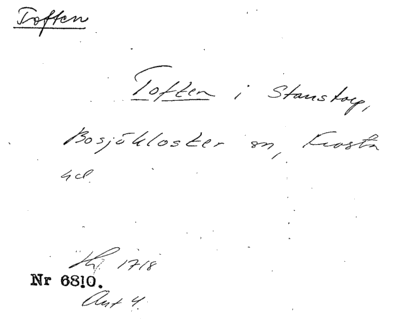 Toften
Toften i Stanstorp,
Bosjökloster sn, Frosta
hd.
Hj. 1718
Nr 6810.
Ant 4